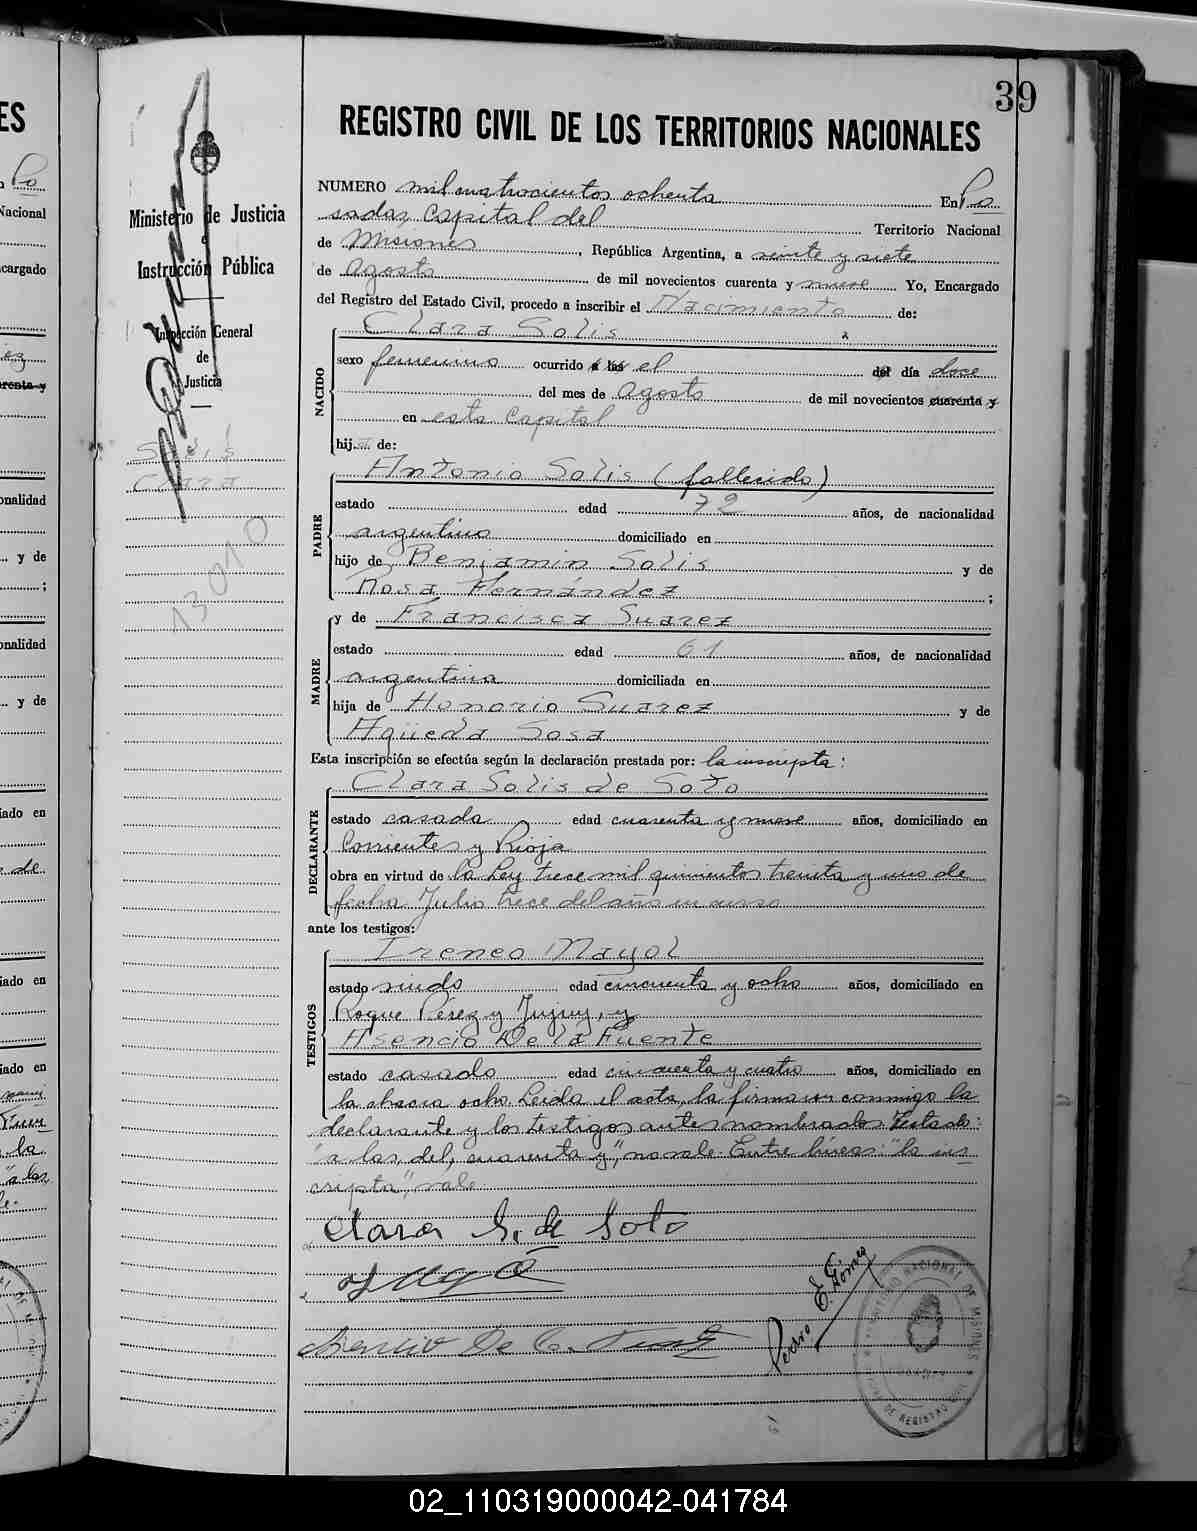 39
REGISTRO CIVIL DE LOS TERRITORIOS NACIONALES
Ministerio de Justicia
e
Instrucción Pública
Inspección General
de
Justicia
Solis
Clara
13010
NUMERO mil cuatrocientos ochenta En Po
sadas, Capital del Territorio Nacional
de Misiones, República Argentina, a veinte y siete
de Agosto de mil novecientos cuarenta y nueve Yo, Encargado
del Registro del Estado Civil, procedo a inscribir el Nacimiento de:
NACIDO
Clara Solis
sexo femenino ocurrido a las el del día doce
del mes de Agosto de mil novecientos cuarenta y
en esta Capital
hij de:
PADRE
Antonio Solis (fallecido)
estado edad 72 años, de nacionalidad
argentino domiciliado en
hijo de Benjamin Solis y de
Rosa Fernández ;
MADRE
y de Francisca Suarez
estado edad 61 años, de nacionalidad
argentina domiciliada en
hija de Honorio Suarez y de
Agüeda Sosa
Esta inscripción se efectúa según la declaración prestada por: la inscripta:
DECLARANTE
Clara Solis de Soto
estado casada edad cuarenta y nueve años, domiciliado en
Corrientes y Rioja
obra en virtud de la Ley trece mil quinientos treinta y uno de
fecha Julio trece del año en curso
ante los testigos:
TESTIGOS
Ireneo Mayol
estado viudo edad cincuenta y ocho años, domiciliado en
Roque Pérez y Jujuy, y
Asencio De la Fuente
estado casado edad cincuenta y cuatro años, domiciliado en
la chacra ocho. Leida el acta, la firman conmigo la
declarante y los testigos antes nombrados. Testado:
"a las, del, cuarenta y", no vale. Entre líneas: "la ins
cripta", vale.
Clara S. de Soto
Asencio De la Fuente
Pedro E. Gómez
02_110319000042-041784